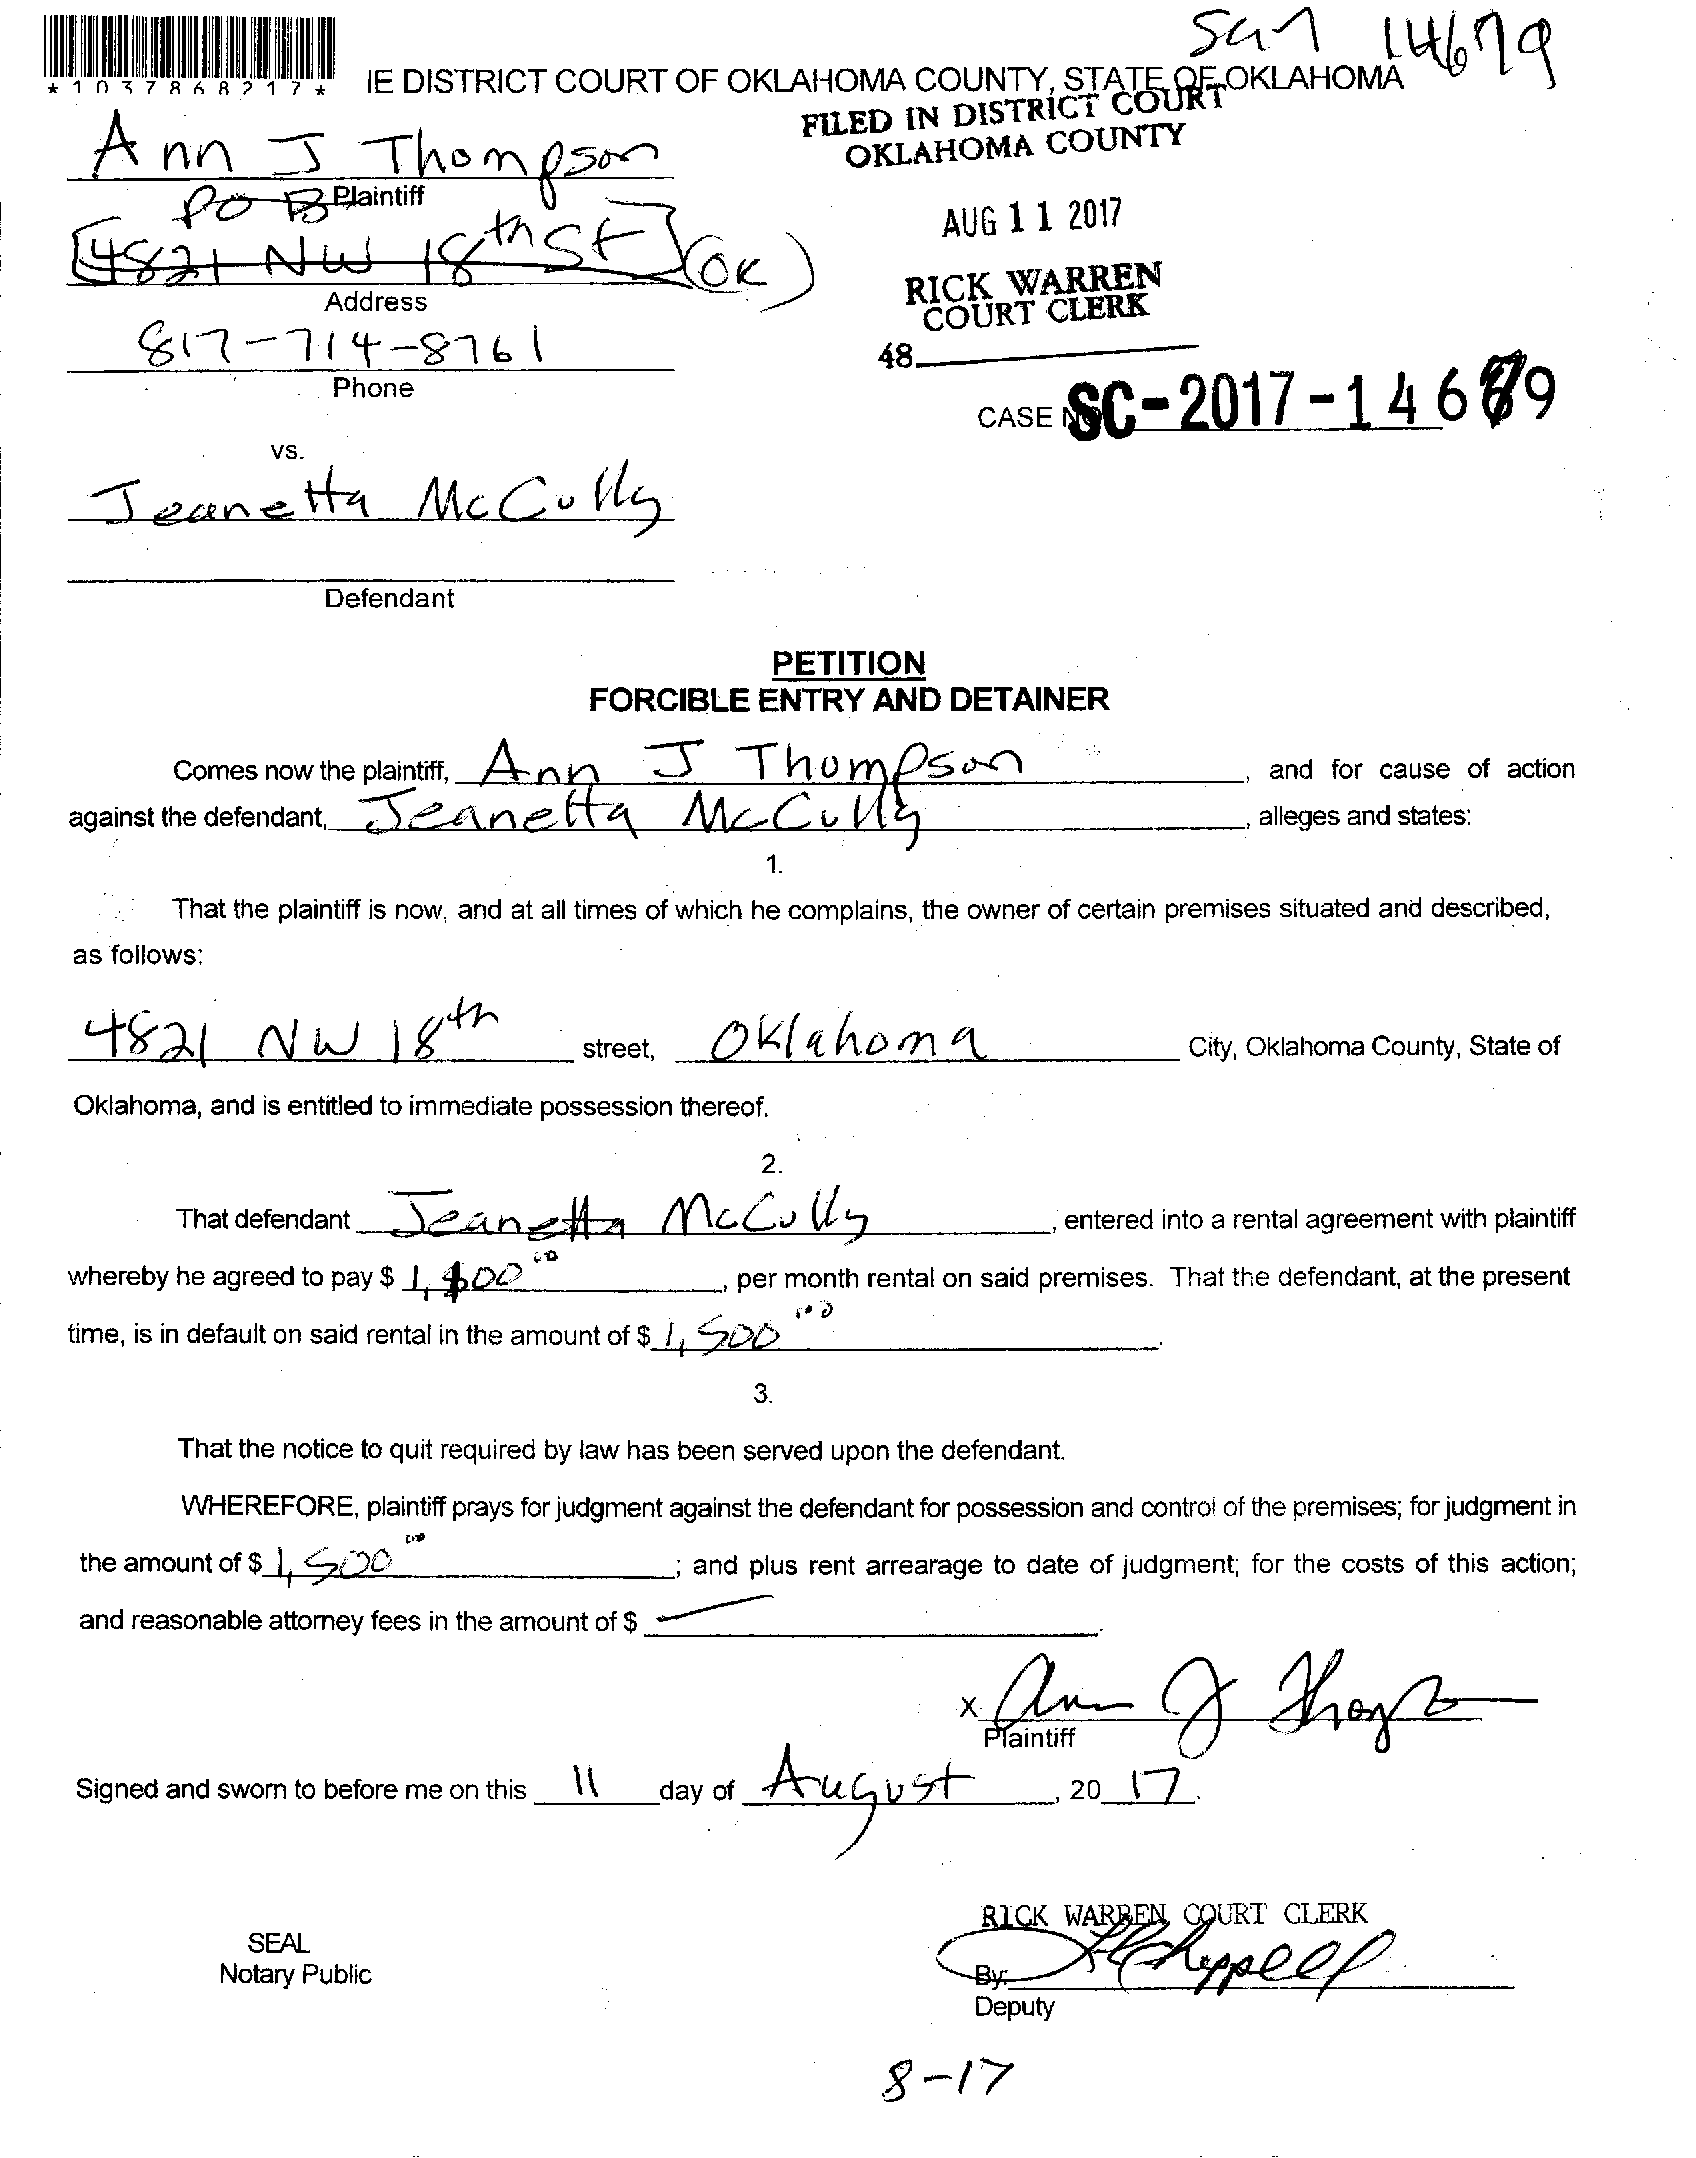 14679
*1037868217*
IE DISTRICT COURT OF OKLAHOMA COUNTY, STATE OF OKLAHOMA
FILED IN DISTRICT COURT
OKLAHOMA COUNTY
Ann J Thompson
PO B Plaintiff
AUG 11 2017
4821 NW 18th St (OK)
Address
RICK WARREN
COURT CLERK
817-714-8761
Phone
48.
CASE NO SC-2017-14679
vs.
Jeanetta McCully
Defendant
PETITION
FORCIBLE ENTRY AND DETAINER
Comes now the plaintiff, Ann J Thompson, and for cause of action
against the defendant, Jeanetta McCully, alleges and states:
1.
That the plaintiff is now, and at all times of which he complains, the owner of certain premises situated and described,
as follows:
4821 NW 18th street, Oklahoma City, Oklahoma County, State of
Oklahoma, and is entitled to immediate possession thereof.
2.
That defendant Jeanetta McCully, entered into a rental agreement with plaintiff
whereby he agreed to pay $, per month rental on said premises. That the defendant, at the present
time, is in default on said rental in the amount of $ 1,500 00.
3.
That the notice to quit required by law has been served upon the defendant.
WHEREFORE, plaintiff prays for judgment against the defendant for possession and control of the premises; for judgment in
the amount of $ 1,500 00; and plus rent arrearage to date of judgment; for the costs of this action;
and reasonable attorney fees in the amount of $ —.
x Ann J Thompson
Plaintiff
Signed and sworn to before me on this 11 day of August, 20 17.
RICK WARREN COURT CLERK
SEAL
Notary Public
By:
Deputy
8-17